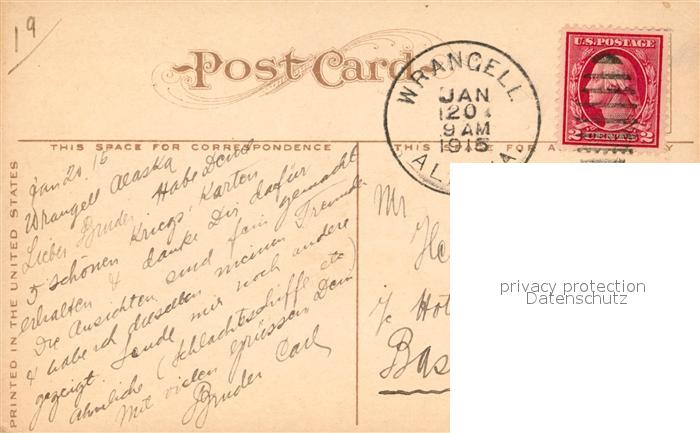 19
Post Card
WRANGELL
JAN
20
9 AM
1915
ALASKA
U.S. POSTAGE
2 CENTS 2
THIS SPACE FOR CORRESPONDENCE
THIS SPACE FOR A
PRINTED IN THE UNITED STATES
Jan 20. 15
Wrangell Alaska
Lieber Bruder Habe Deine
5 schönen Kriegs' Karten
erhalten & danke Dir dafür
Die Ansichten sind fein gemacht
& habe ich dieselben meinen Freunden
gezeigt. Sende mir noch andere
ähnliche (Schlachtschiffe etc)
Mit vielen grüssen Dein
Bruder Carl
Mr
He
c/o Hot
Bas
privacy protection
Datenschutz